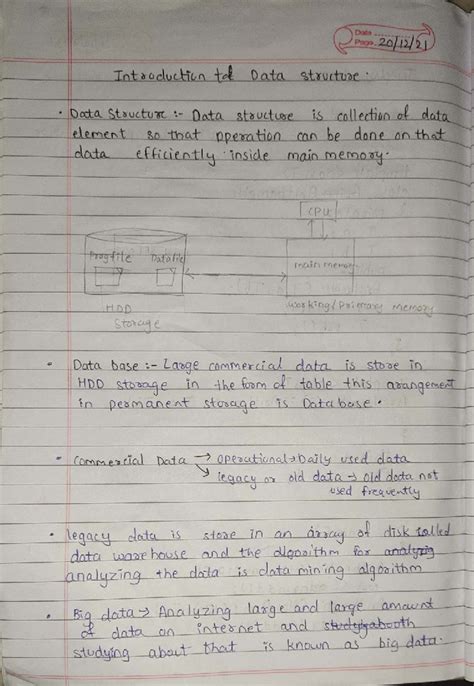 Date
Page 20/12/21
Introduction to Data structure.
• Data Structure :- Data structure is collection of data
element so that operation can be done on that
data efficiently inside main memory.
CPU
Progfile Datafile
main memory
HDD
Storage
working/primary memory
• Data base :- Large commercial data is store in
HDD storage in the form of table this arangement
in permanent storage is Database.
• Commercial Data → Operational → Daily used data
↳ legacy or old data → old data not
used frequently
• legacy data is store in an array of disk called
data warehouse and the algorithm for
analyzing the data is data mining algorithm
• Big data → Analyzing large and large amount
of data on internet and
studying about that is known as big data.